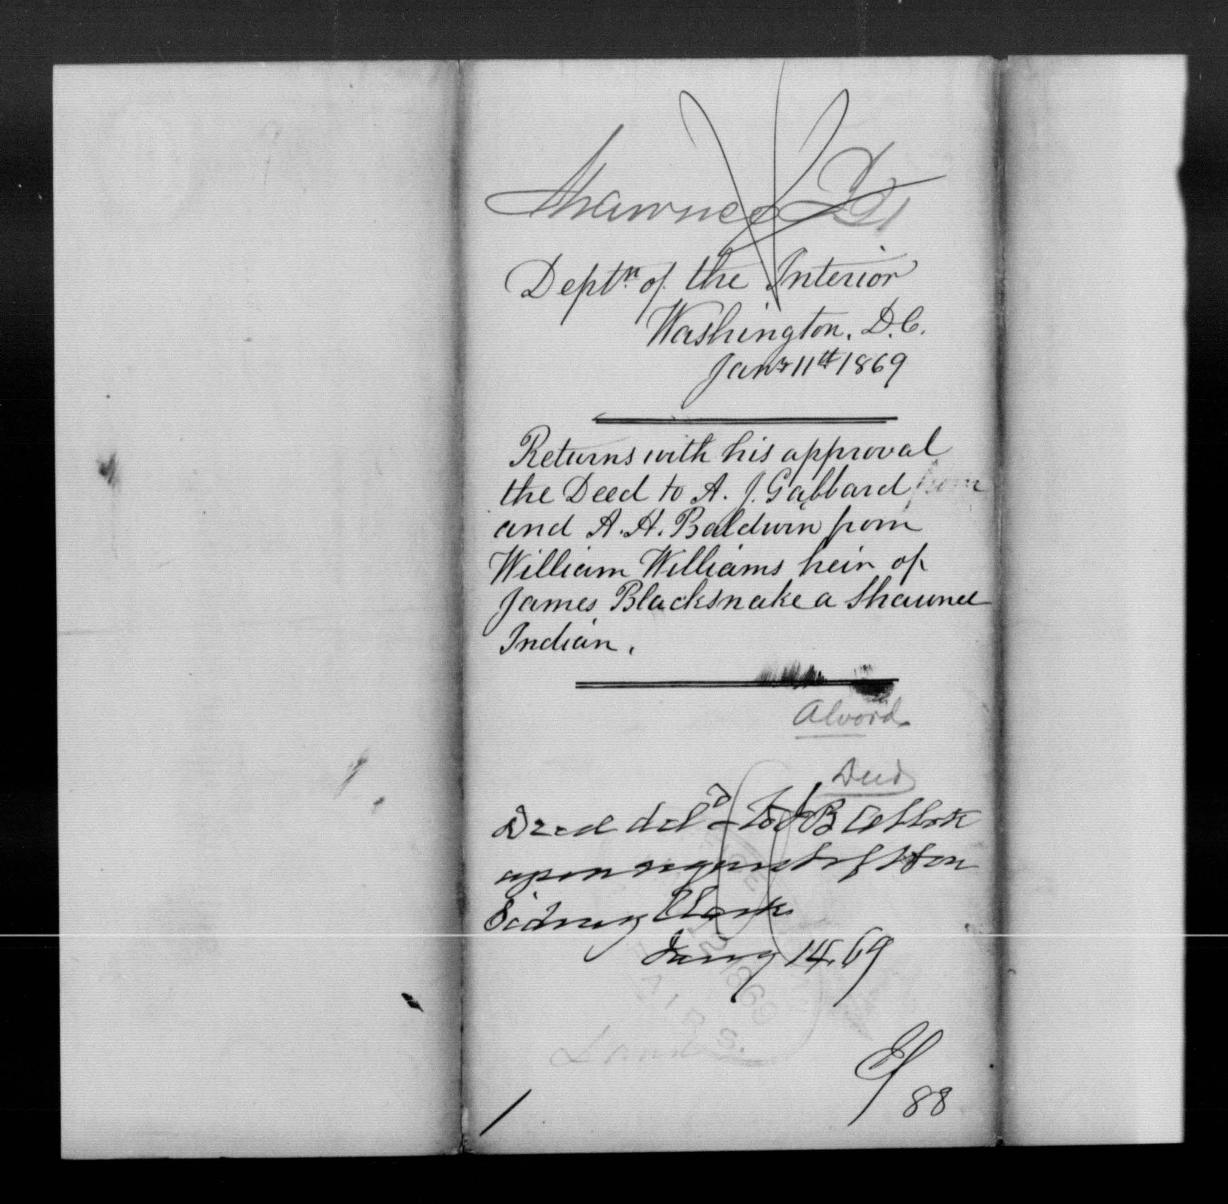 Shawnee
Deptm of the Interior
Washington, D.C.
Jany 11th 1869
Returns with his approval
the Deed to A. J. Gabbard from
and A. H. Baldwin from
William Williams heir of
James Blacksnake a Shawnee
Indian.
Alvord
Deed
Deed deld to J B Abbott
upon request of Hon
Sidney Clark
Jany 14. 69
12 1869
AIRS.
Land
88